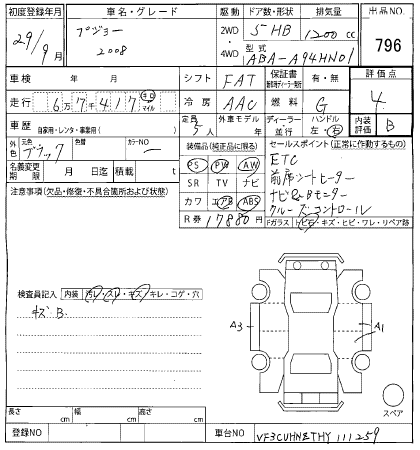 初度登録年月 車名・グレード 駆動 ドア数・形状 排気量 出品NO.
29/9月 プジョー 2008 2WD 4WD 5HB 1200cc 796
型式 ABA-A94HN01
車検 年 月 シフト FAT 保証書 有・無 評価点
走行 6万7千417 キロ マイル 冷房 AAC 燃料 G 4
車歴 自家用・レンタ・事業用( ) 定員 5人 外車モデル年 ディーラー 並行 ハンドル 左・右 内装評価 B
外色 元色 ブラック 色替 カラーNO ー 装備品(純正品に限る) セールスポイント(正常に作動するもの)
名義変更期限 月 日迄 積載 t PS PW AW ETC
注意事項(欠品・修復・不具合箇所および状態) SR TV ナビ 前席シートヒーター
カワ エアB ABS ナビ&Bモニター
R券 17880円 クルーズコントロール
Fガラス トビ石・キズ・ヒビ・ワレ・リペア跡
検査員記入 内装 汚レ・スレ・キズ・キレ・コゲ・穴
キズB.
A3 A1
スペア
長さ cm 幅 cm 高さ cm
登録NO 車台NO VF3CUHNZTHY111259